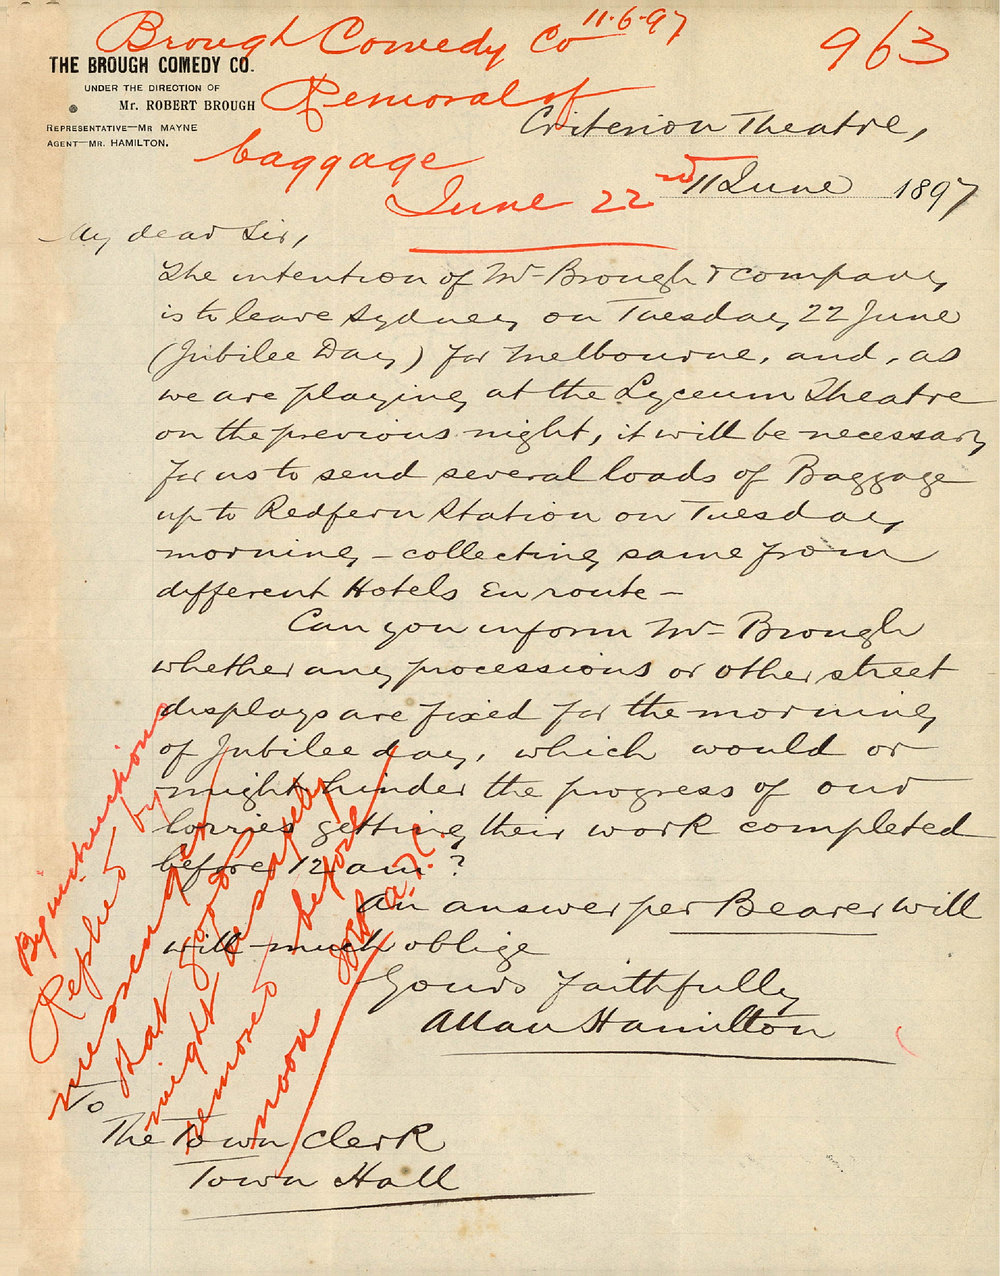 Brough Comedy Co 11.6.97
963
Removal of
baggage
June 22nd
THE BROUGH COMEDY CO.
UNDER THE DIRECTION OF
Mr. ROBERT BROUGH
REPRESENTATIVE—MR MAYNE
AGENT—MR. HAMILTON.
Criterion Theatre,
11 June 1897
My dear Sir,
The intention of Mr Brough & company
is to leave Sydney on Tuesday 22 June
(Jubilee Day) for Melbourne, and, as
we are playing at the Lyceum Theatre
on the previous night, it will be necessary
for us to send several loads of Baggage
up to Redfern Station on Tuesday
morning – collecting same from
different Hotels En route –
Can you inform Mr Brough
whether any processions or other street
displays are fixed for the morning
of Jubilee day, which would or
might hinder the progress of our
lorries getting their work completed
before 12 am?
An answer per Bearer will
will much oblige
Yours faithfully
Allan Hamilton
To
The Town Clerk
Town Hall
By instructions
Replied by
messenger
that goods
might be safely
removed before
noon